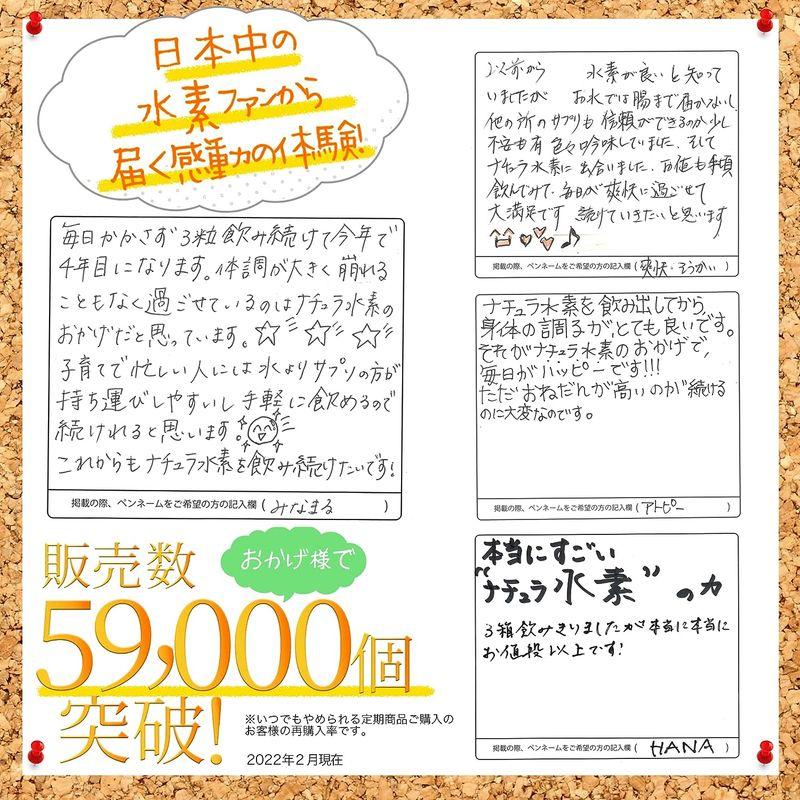 日本中の
水素ファンから
届く感動の体験!
毎日かかさず3粒飲み続けて今年で
4年目になります。体調が大きく崩れる
こともなく過ごせているのはナチュラ水素の
おかげだと思っています。☆☆☆
子育てで忙しい人には水よりサプリの方が
持ち運びしやすいし手軽に飲めるので
続けれると思います!
これからもナチュラ水素を飲み続けたいです!
掲載の際、ペンネームをご希望の方の記入欄(みなまる)
以前から 水素が良いと知って
いましたが お水では腸まで届かないし
他の所のサプリも信頼ができるのか少し
不安も有 色々吟味していました。そして
ナチュラ水素に出会いました。お値も手頃
飲んでみて、毎日が爽快に過ごせて
大満足です 続けていきたいと思います
♪
掲載の際、ペンネームをご希望の方の記入欄(爽快・そうかい)
ナチュラ水素を飲み出してから、
身体の調子が、とても良いです。
それがナチュラ水素のおかげで、
毎日がハッピーです!!!
ただおねだんが高いのが続ける
のに大変なのです。
掲載の際、ペンネームをご希望の方の記入欄(アトピー)
本当にすごい
"ナチュラ水素"の力
3箱飲みきりましたが本当に本当に
お値段以上です!
掲載の際、ペンネームをご希望の方の記入欄(HANA)
おかげ様で
販売数
59,000個
突破!
※いつでもやめられる定期商品ご購入の
お客様の再購入率です。
2022年2月現在